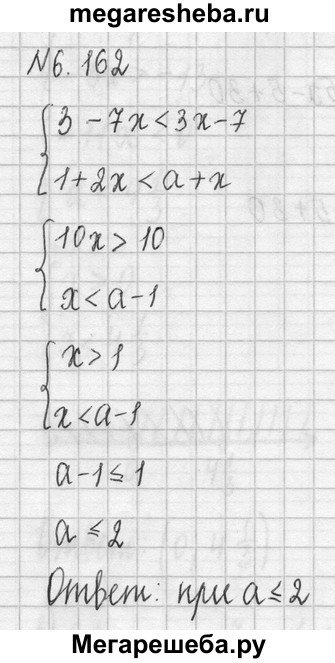 megaresheba.ru
N6.162
3 - 7x < 3x - 7
1 + 2x < a + x
10x > 10
x < a - 1
x > 1
x < a - 1
a - 1 ≤ 1
a ≤ 2
Ответ: при a ≤ 2
Мегарешеба.ру